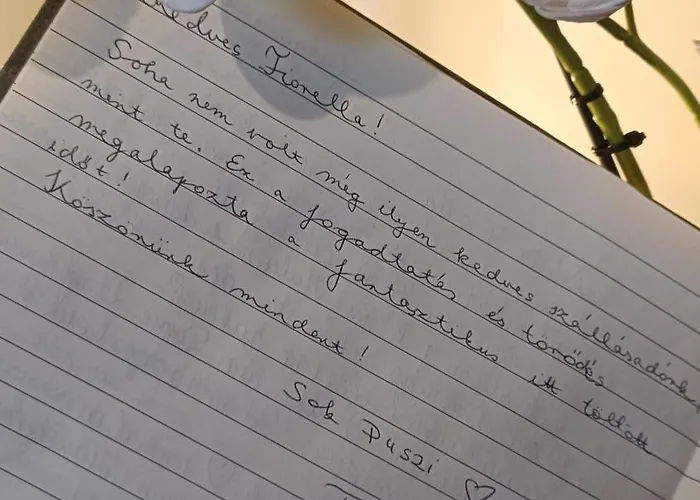 Kedves Fiorella!
Soha nem volt még ilyen kedves szállásadónk,
mint te. Ez a fogadtatás és törődés
megalapozta a fantasztikus itt töltött
időt!
Köszönünk mindent!
Sok puszi ♡